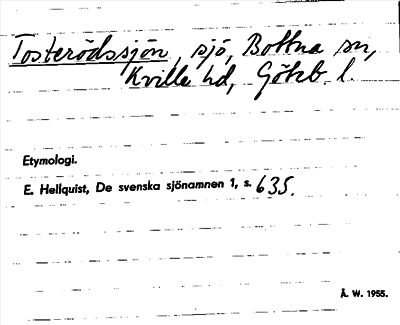 Tosterödssjön, sjö, Bottna sn,
Kville hd, Göteb. l.
Etymologi.
E. Hellquist, De svenska sjönamnen 1, s. 635.
Å. W. 1955.